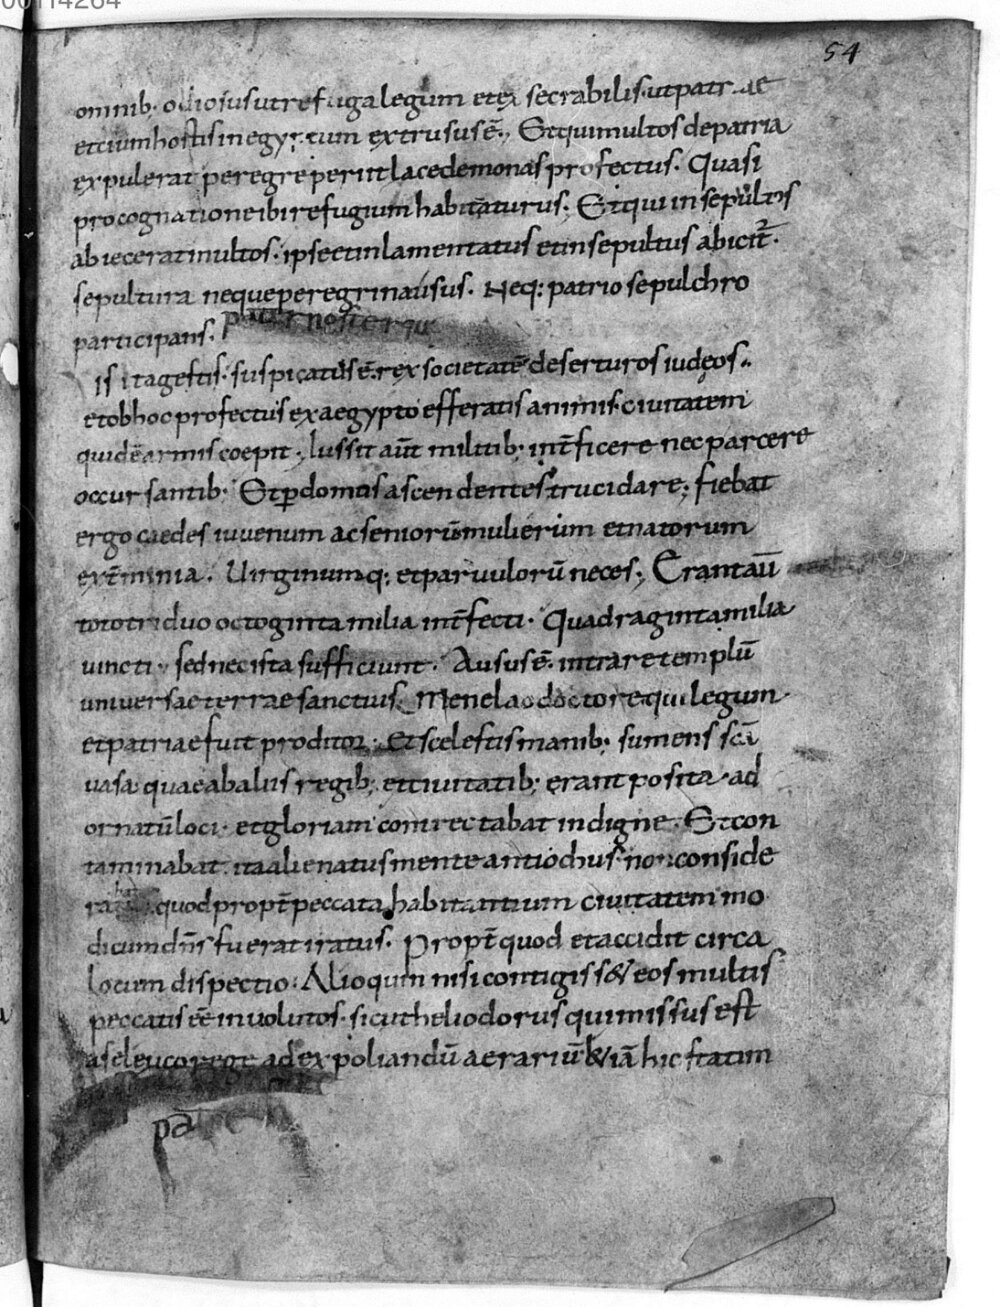 00114264
54
omnib; odiosus ut refuga legum et exsecrabilis ut patriae
et ciuium hostis in egyptum extrusus ē. Et qui multos de patria
expulerat peregre periit lacedemonas profectus. Quasi
pro cognatione ibi refugium habiturus; Et qui insepultos
abiecerat multos. ipse et inlamentatus et insepultus abicit̄.
sepultura neque peregrina usus. Neq: patrio sepulchro
participans. pater noster qui
Is itaq gestis. suspicatus ē. rex societatē deserturos iudęos..
et ob hoc profectus ex aegypto efferatis animis. ciuitatem
quidē armis coepit. Iussit aūt militib; int̄ficere nec parcere
occursantib; Et ꝑ domus ascendentes trucidare; fiebat
ergo caedes iuuenum ac seniorū mulierum et natorum
ext̄minia. Uirginumq; et paruulorū neces; Erant aūt
toto triduo octoginta milia int̄fecti. Quadraginta milia
uincti. sed nec ista sufficiunt. Ausus ē. intrare templū
uniuersae terrae sanctius. Menelao doctore qui legum
et patriae fuit proditor. Et scelestis manib; sumens scā
uasa. quae ab aliis regib; et ciuitatib; erant posita. ad
ornatū loci. et gloriam contrectabat indigne. Et con
taminabat. ita alienatus mente antiochus. non conside
rabat quod propt̄ peccata habitantium ciuitatem mo
dicum dn̄s fuerat iratus. Propt̄ quod et accidit circa
locum dispectio: Alioquin nisi contigiss& eos multis
peccatis eē inuolutos. sicut heliodorus qui missus est
a seleuco rege ad expoliandū aerariū &iā hic statim
pa